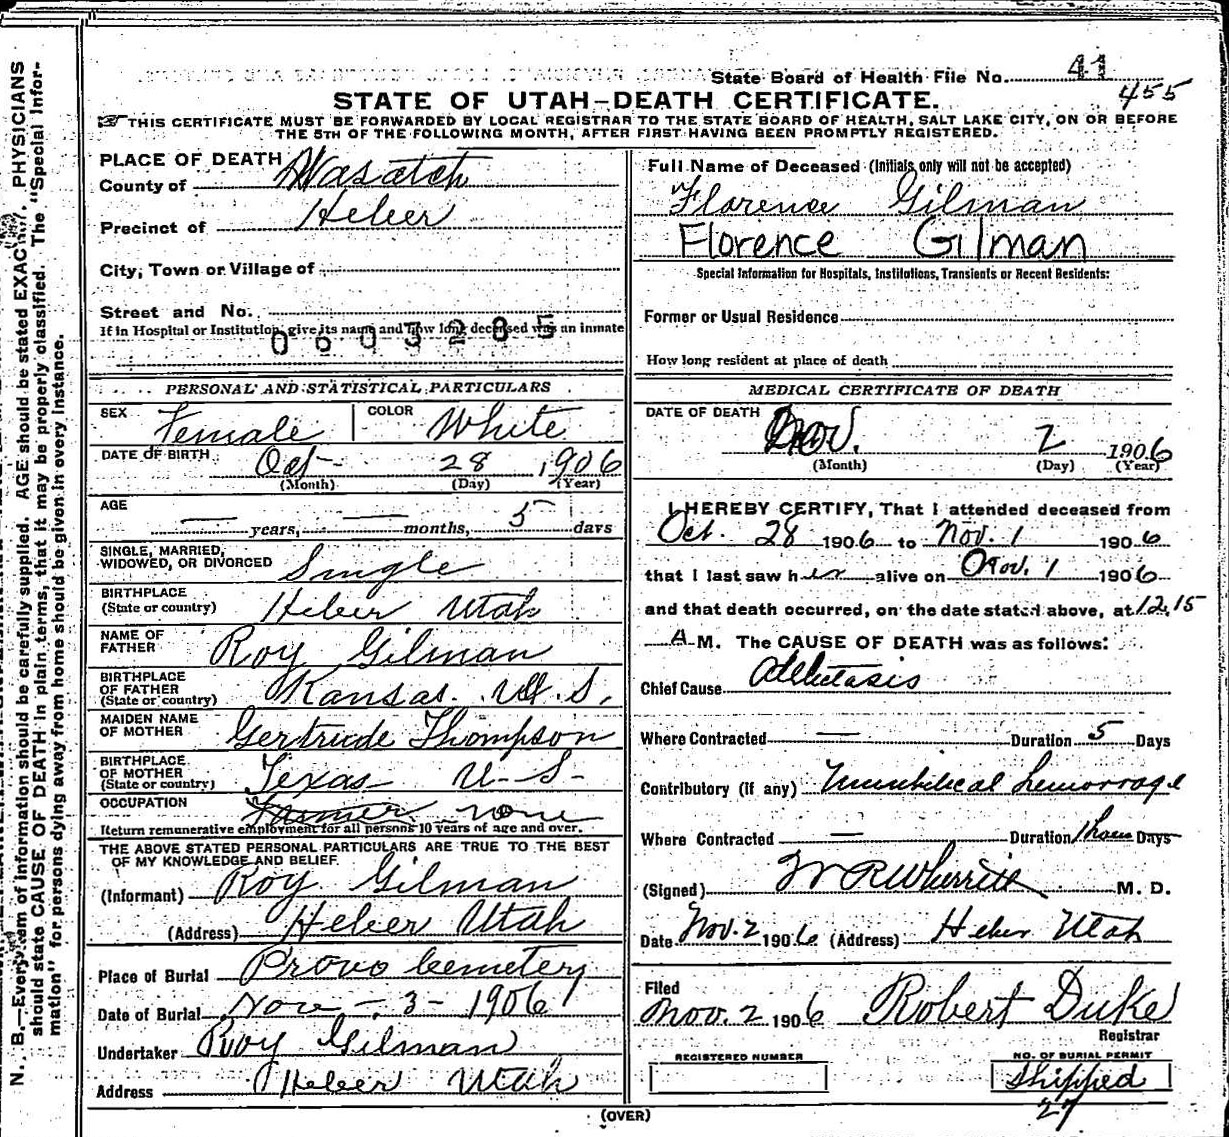 State Board of Health File No. 41
455
STATE OF UTAH—DEATH CERTIFICATE.
THIS CERTIFICATE MUST BE FORWARDED BY LOCAL REGISTRAR TO THE STATE BOARD OF HEALTH, SALT LAKE CITY, ON OR BEFORE
THE 5TH OF THE FOLLOWING MONTH, AFTER FIRST HAVING BEEN PROMPTLY REGISTERED.
PLACE OF DEATH
County of Wasatch
Precinct of Heber
City, Town or Village of
Street and No.
If in Hospital or Institution, give its name and how long deceased was an inmate
0603285
PERSONAL AND STATISTICAL PARTICULARS
SEX Female COLOR White
DATE OF BIRTH Oct 28 1906
(Month) (Day) (Year)
AGE — years, — months, 5 days
SINGLE, MARRIED,
WIDOWED, OR DIVORCED Single
BIRTHPLACE
(State or country) Heber Utah
NAME OF
FATHER Roy Gilman
BIRTHPLACE
OF FATHER
(State or country) Kansas. U.S.
MAIDEN NAME
OF MOTHER Gertrude Thompson
BIRTHPLACE
OF MOTHER
(State or country) Texas U-S-
OCCUPATION Farmer none
Return remunerative employment for all persons 10 years of age and over.
THE ABOVE STATED PERSONAL PARTICULARS ARE TRUE TO THE BEST
OF MY KNOWLEDGE AND BELIEF.
(Informant) Roy Gilman
(Address) Heber Utah
Place of Burial Provo Cemetery
Date of Burial Nov - 3 - 1906
Undertaker Roy Gilman
Address Heber Utah
Full Name of Deceased (Initials only will not be accepted)
Florence Gilman
Florence Gilman
Special Information for Hospitals, Institutions, Transients or Recent Residents:
Former or Usual Residence
How long resident at place of death
MEDICAL CERTIFICATE OF DEATH
DATE OF DEATH Nov. 2 1906
(Month) (Day) (Year)
I HEREBY CERTIFY, That I attended deceased from
Oct. 28 1906 to Nov. 1 1906
that I last saw her alive on Nov. 1 1906
and that death occurred, on the date stated above, at 12.15
A M. The CAUSE OF DEATH was as follows:
Chief Cause
Where Contracted — Duration 5 Days
Contributory (if any) Umbilical hemorrage
Where Contracted — Duration 1 hour Days
(Signed) W R Wherritt M. D.
Date Nov. 2 1906 (Address) Heber Utah
Filed
Nov. 2 1906 Robert Duke
Registrar
REGISTERED NUMBER
NO. OF BURIAL PERMIT
Shipped
27
(OVER)
N. B.—Every item of information should be carefully supplied. AGE should be stated EXACTLY. PHYSICIANS
should state CAUSE OF DEATH in plain terms, that it may be properly classified. The "Special Infor-
mation" for persons dying away from home should be given in every instance.